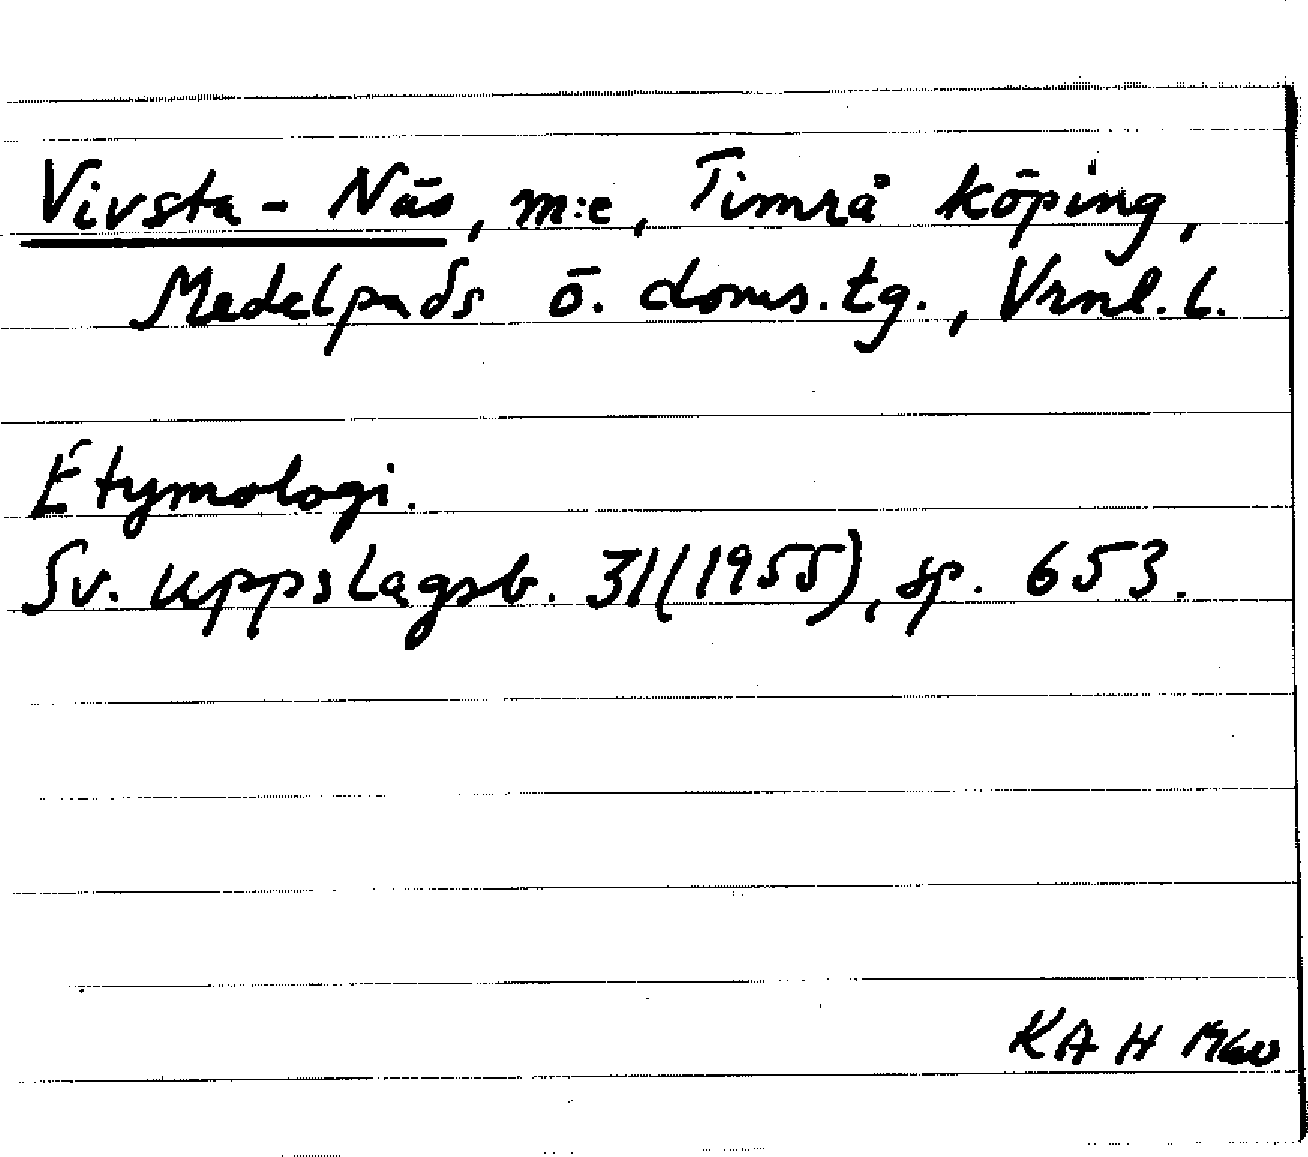 Vivsta-Näs, m:e, Timrå köping,
Medelpads ö. doms.tg., Vrnl. l.
Etymologi.
Sv. uppslagsb. 31(1955), sp. 653.
KA H 1960